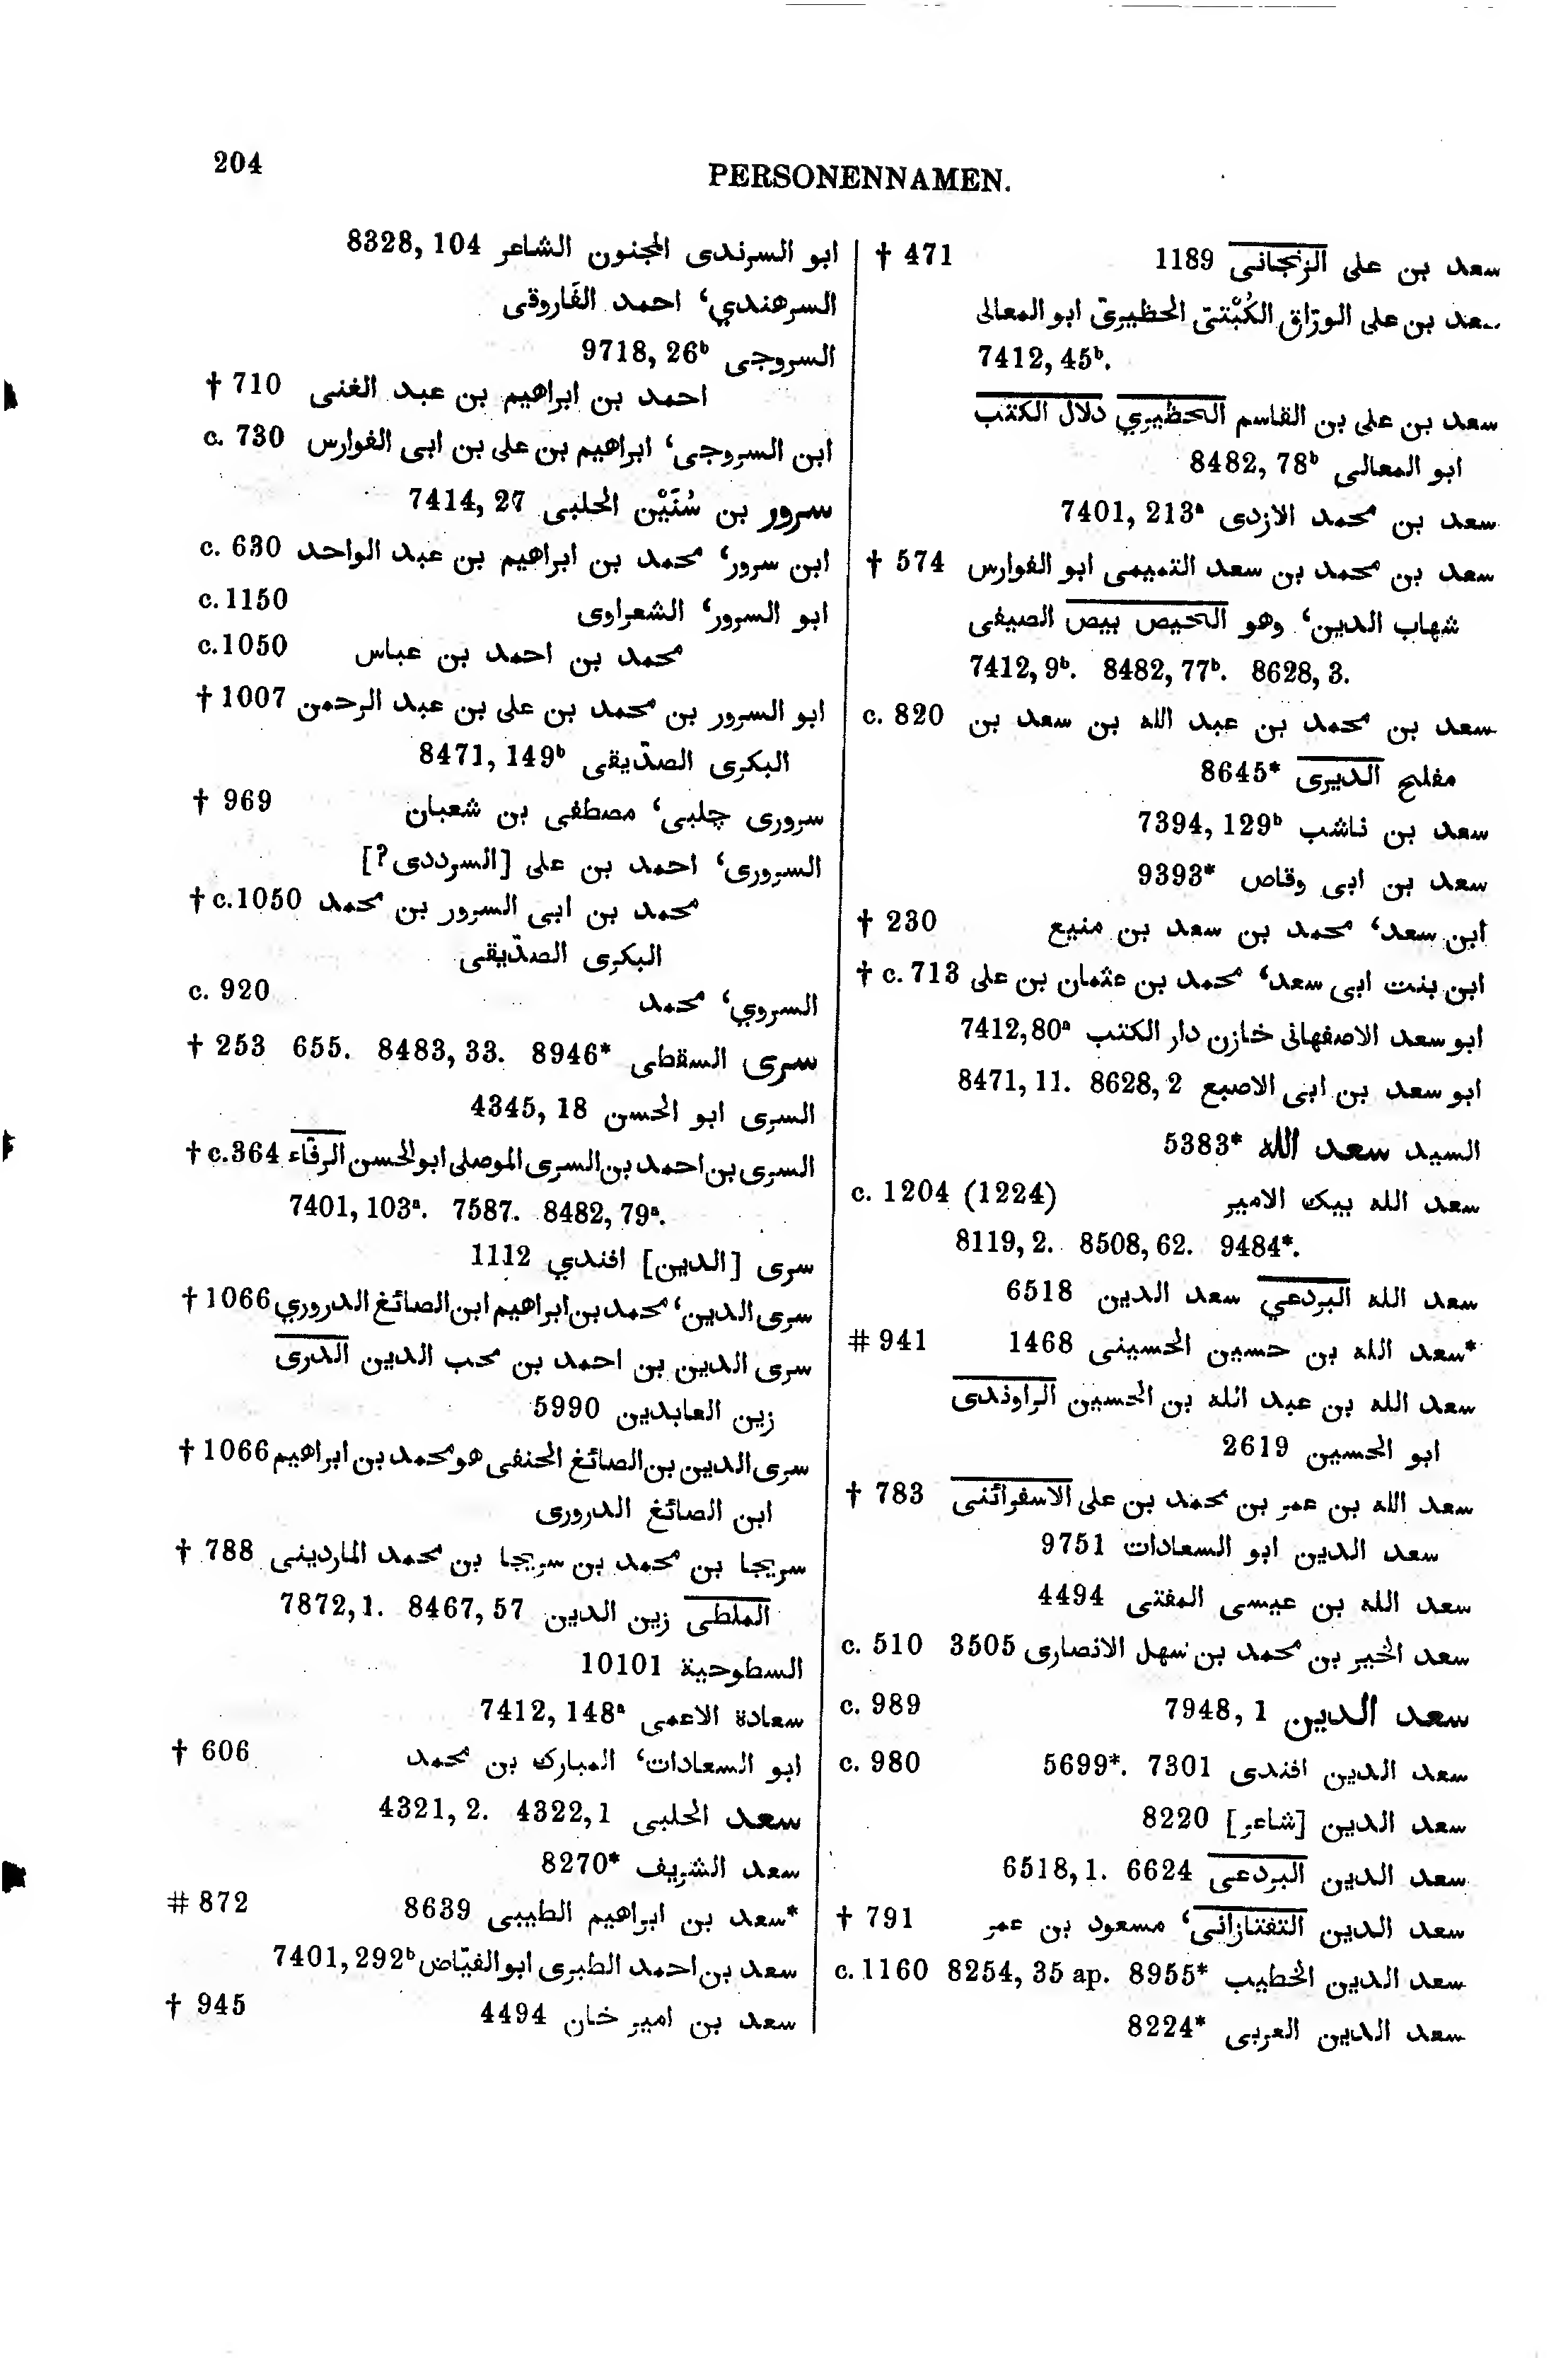 204
PERSONENNAMEN.
ابو السرندى المجنون الشاعر 8328, 104
السرهندي، احمد الفاروقى
السروجى 9718, 26ᵇ
احمد بن ابراهيم بن عبد الغنى † 710
ابن السروجى، ابراهيم بن على بن ابى الفوارس c. 730
سرور بن سُنَيْن الحلبى 7414, 27
ابن سرور، محمد بن ابراهيم بن عبد الواحد c. 630
ابو السرور، الشعراوى c. 1150
محمد بن احمد بن عباس c. 1050
ابو السرور بن محمد بن على بن عبد الرحمن † 1007
البكرى الصدّيقى 8471, 149ᵇ
سرورى چلبى، مصطفى بن شعبان † 969
السرورى، احمد بن على [السرددى?]
محمد بن ابى السرور بن محمد † c. 1050
البكرى الصدّيقى
السروي، محمد c. 920
سرى السقطى † 253 655. 8483, 33. 8946*
السرى ابو الحسن 4345, 18
السرى بن احمد بن السرى الموصلى ابو الحسن الرفّاء † c. 364
7401, 103ᵃ. 7587. 8482, 79ᵃ.
سرى [الدين] افندي 1112
سرى الدين، محمد بن ابراهيم ابن الصائغ الدروري † 1066
سرى الدين بن احمد بن محب الدين الدرى
زين العابدين 5990
سرى الدين بن الصائغ الحنفى هو محمد بن ابراهيم † 1066
ابن الصائغ الدرورى
سريجا بن محمد بن سريجا بن محمد الماردينى † 788
الملطى زين الدين 7872, 1. 8467, 57
السطوحية 10101
سعادة الاعمى 7412, 148ᵃ
ابو السعادات، المبارك بن محمد † 606
سعد الحلبى 4321, 2. 4322, 1
سعد الشريف 8270*
*سعد بن ابراهيم الطيبى 8639 # 872
سعد بن احمد الطبرى ابو الفيّاض 7401, 292ᵇ
سعد بن امير خان 4494 † 945
سعد بن على الزنجانى 1189 † 471
سعد بن على الورّاق الكُتْبىّ الحظيرىّ ابو المعالى
7412, 45ᵇ.
سعد بن على بن القاسم الحظيري دلال الكتب
ابو المعالى 8482, 78ᵇ
سعد بن محمد الازدى 7401, 213ᵃ
سعد بن محمد بن سعد التميمى ابو الفوارس † 574
شهاب الدين، وهو الحيص بيص الصيفى
7412, 9ᵇ. 8482, 77ᵇ. 8628, 3.
سعد بن محمد بن عبد الله بن سعد بن c. 820
مفلح الديرى 8645*
سعد بن ناشب 7394, 129ᵇ
سعد بن ابى وقاص 9393*
ابن سعد، محمد بن سعد بن منيع † 230
ابن بنت ابى سعد، محمد بن عثمان بن على † c. 713
ابو سعد الاصفهانى خازن دار الكتب 7412, 80ᵃ
ابو سعد بن ابى الاصبع 8471, 11. 8628, 2
السيد سعد الله 5383*
سعد الله بيك الامير c. 1204 (1224)
8119, 2. 8508, 62. 9484*.
سعد الله البردعي سعد الدين 6518
*سعد الله بن حسين الحسينى 1468 # 941
سعد الله بن عبد الله بن الحسين الراوندى
ابو الحسين 2619
سعد الله بن عمر بن محمد بن على الاسفرائنى † 783
سعد الدين ابو السعادات 9751
سعد الله بن عيسى المفتى 4494
سعد الخير بن محمد بن سهل الانصارى 3505 c. 510
سعد الدين 7948, 1 c. 989
سعد الدين افندى 5699*. 7301 c. 980
سعد الدين [شاعر] 8220
سعد الدين البردعى 6518, 1. 6624
سعد الدين التفتازانى، مسعود بن عمر † 791
سعد الدين الخطيب c. 1160 8254, 35 ap. 8955*
سعد الدين العربى 8224*